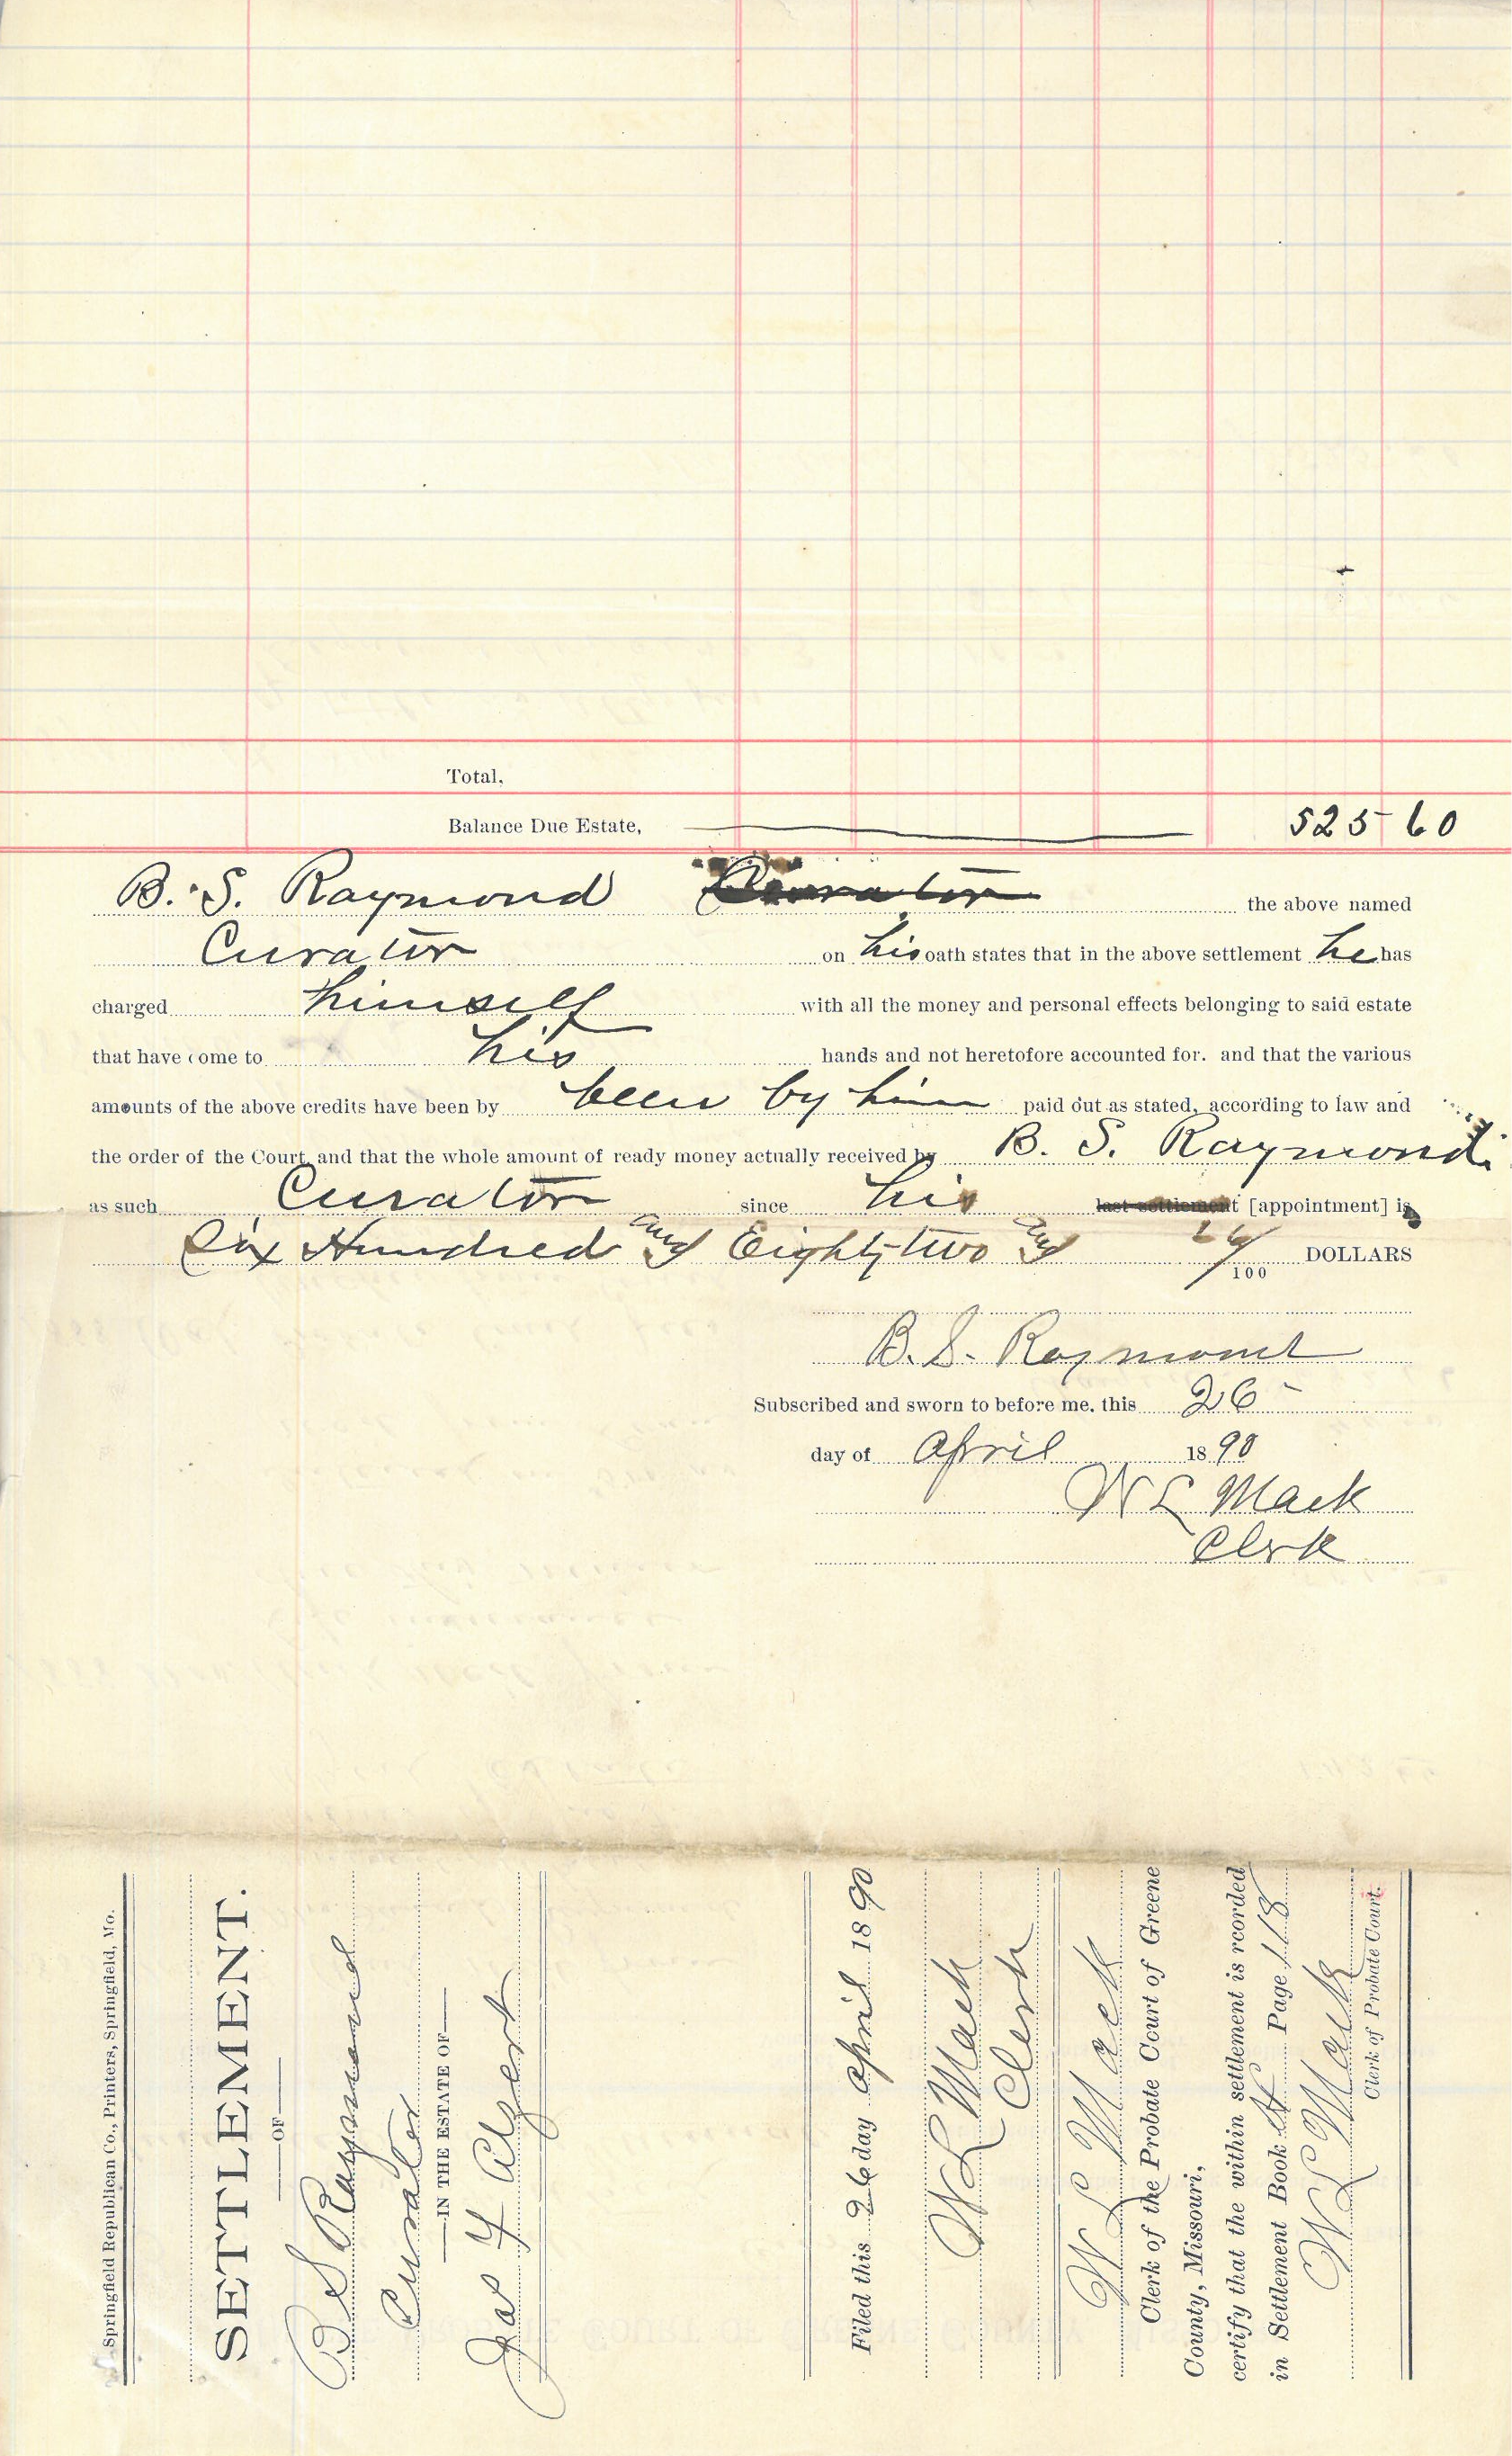 Total,
Balance Due Estate, 525 60
B. S. Raymond Curator the above named
Curator on his oath states that in the above settlement he has
charged himself with all the money and personal effects belonging to said estate
that have come to his hands and not heretofore accounted for. and that the various
amounts of the above credits have been by been by him paid out as stated, according to law and
the order of the Court and that the whole amount of ready money actually received by B. S. Raymond
as such Curator since his last settlement [appointment] is
Six Hundred and Eighty two and 26/100 DOLLARS
B. S. Raymond
Subscribed and sworn to before me, this 26
day of April 1890
W L Mack
Clerk
Springfield Republican Co., Printers, Springfield, Mo.
SETTLEMENT.
OF
B S Raymond
Curator
IN THE ESTATE OF
Jas F
Filed this 26 day April 1890
W L Mack
Clerk
W L Mack
Clerk of the Probate Court of Greene
County, Missouri,
certify that the within settlement is rcorded
in Settlement Book Page 118
W L Mack
Clerk of Probate Court.